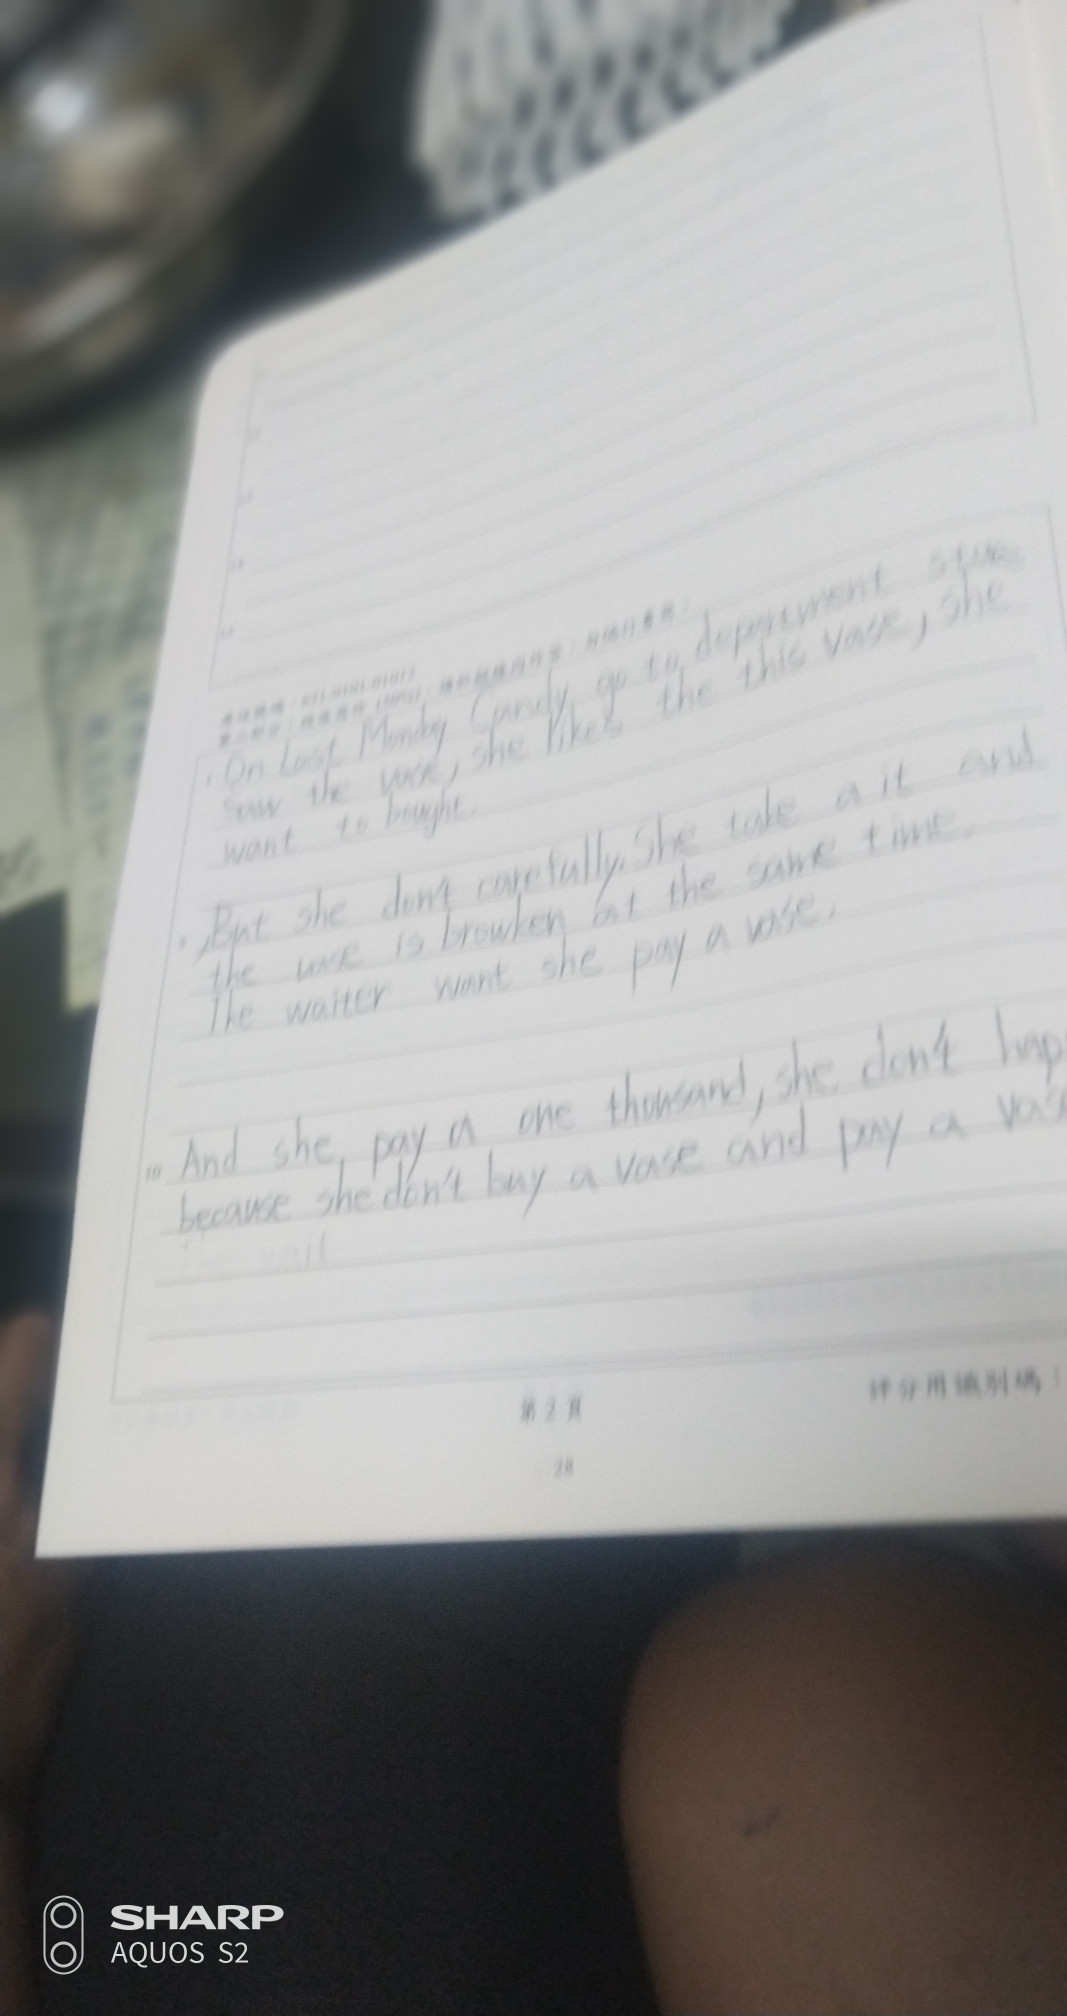 On Last Monday Candy go to department
saw the vase, she likes the this vase, she
want to bought.
But she don't carefully. She take a it and
the vase is browken at the same time.
The waiter want she pay a vase.
10 And she pay a one thousand, she don't hap
because she don't buy a vase and pay a vase
第 2 頁
評分用識別碼：
28
SHARP
AQUOS S2